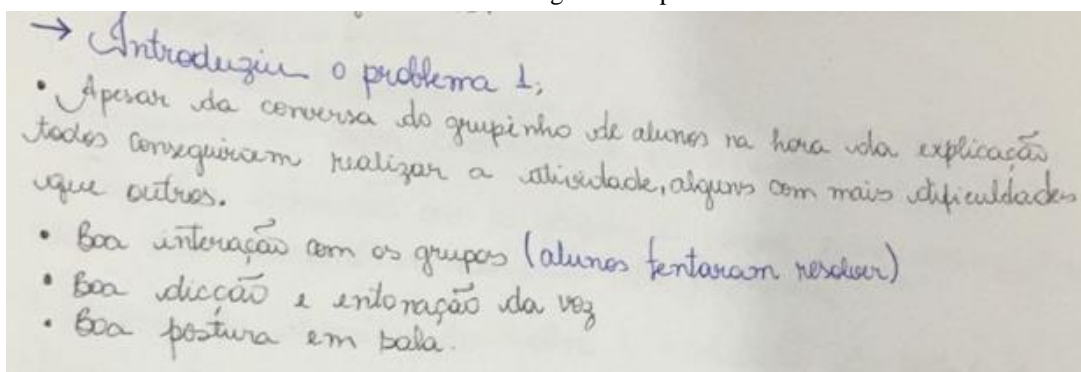 → Introduziu o problema 1;
• Apesar da conversa do grupinho de alunos na hora da explicação
todos conseguiram realizar a atividade, alguns com mais dificuldades
que outros.
• Boa interação com os grupos (alunos tentaram resolver)
• Boa dicção e entonação da voz
• Boa postura em sala.